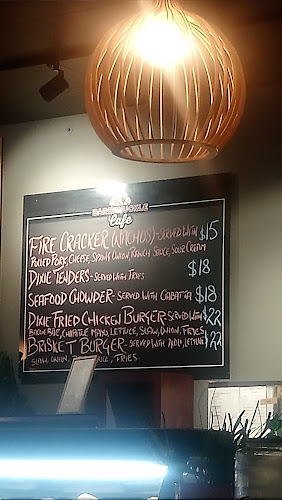 Cafe
FIRE CRACKER (NACHOS) - SERVED WITH $15
PULLED PORK, CHEESE, SPRING ONION, RANCH SAUCE, SOUR CREAM
DIXIE TENDERS - SERVED WITH FRIES $18
SEAFOOD CHOWDER - SERVED WITH CIABATTA $18
DIXIE FRIED CHICKEN BURGER SERVED WITH $22
BACON, CHIPOTLE MAYO, LETTUCE, SLAW, ONION, FRIES
BRISKET BURGER - SERVED WITH AIOLI, LETTUCE $22
SLAW, ONION, FRIES